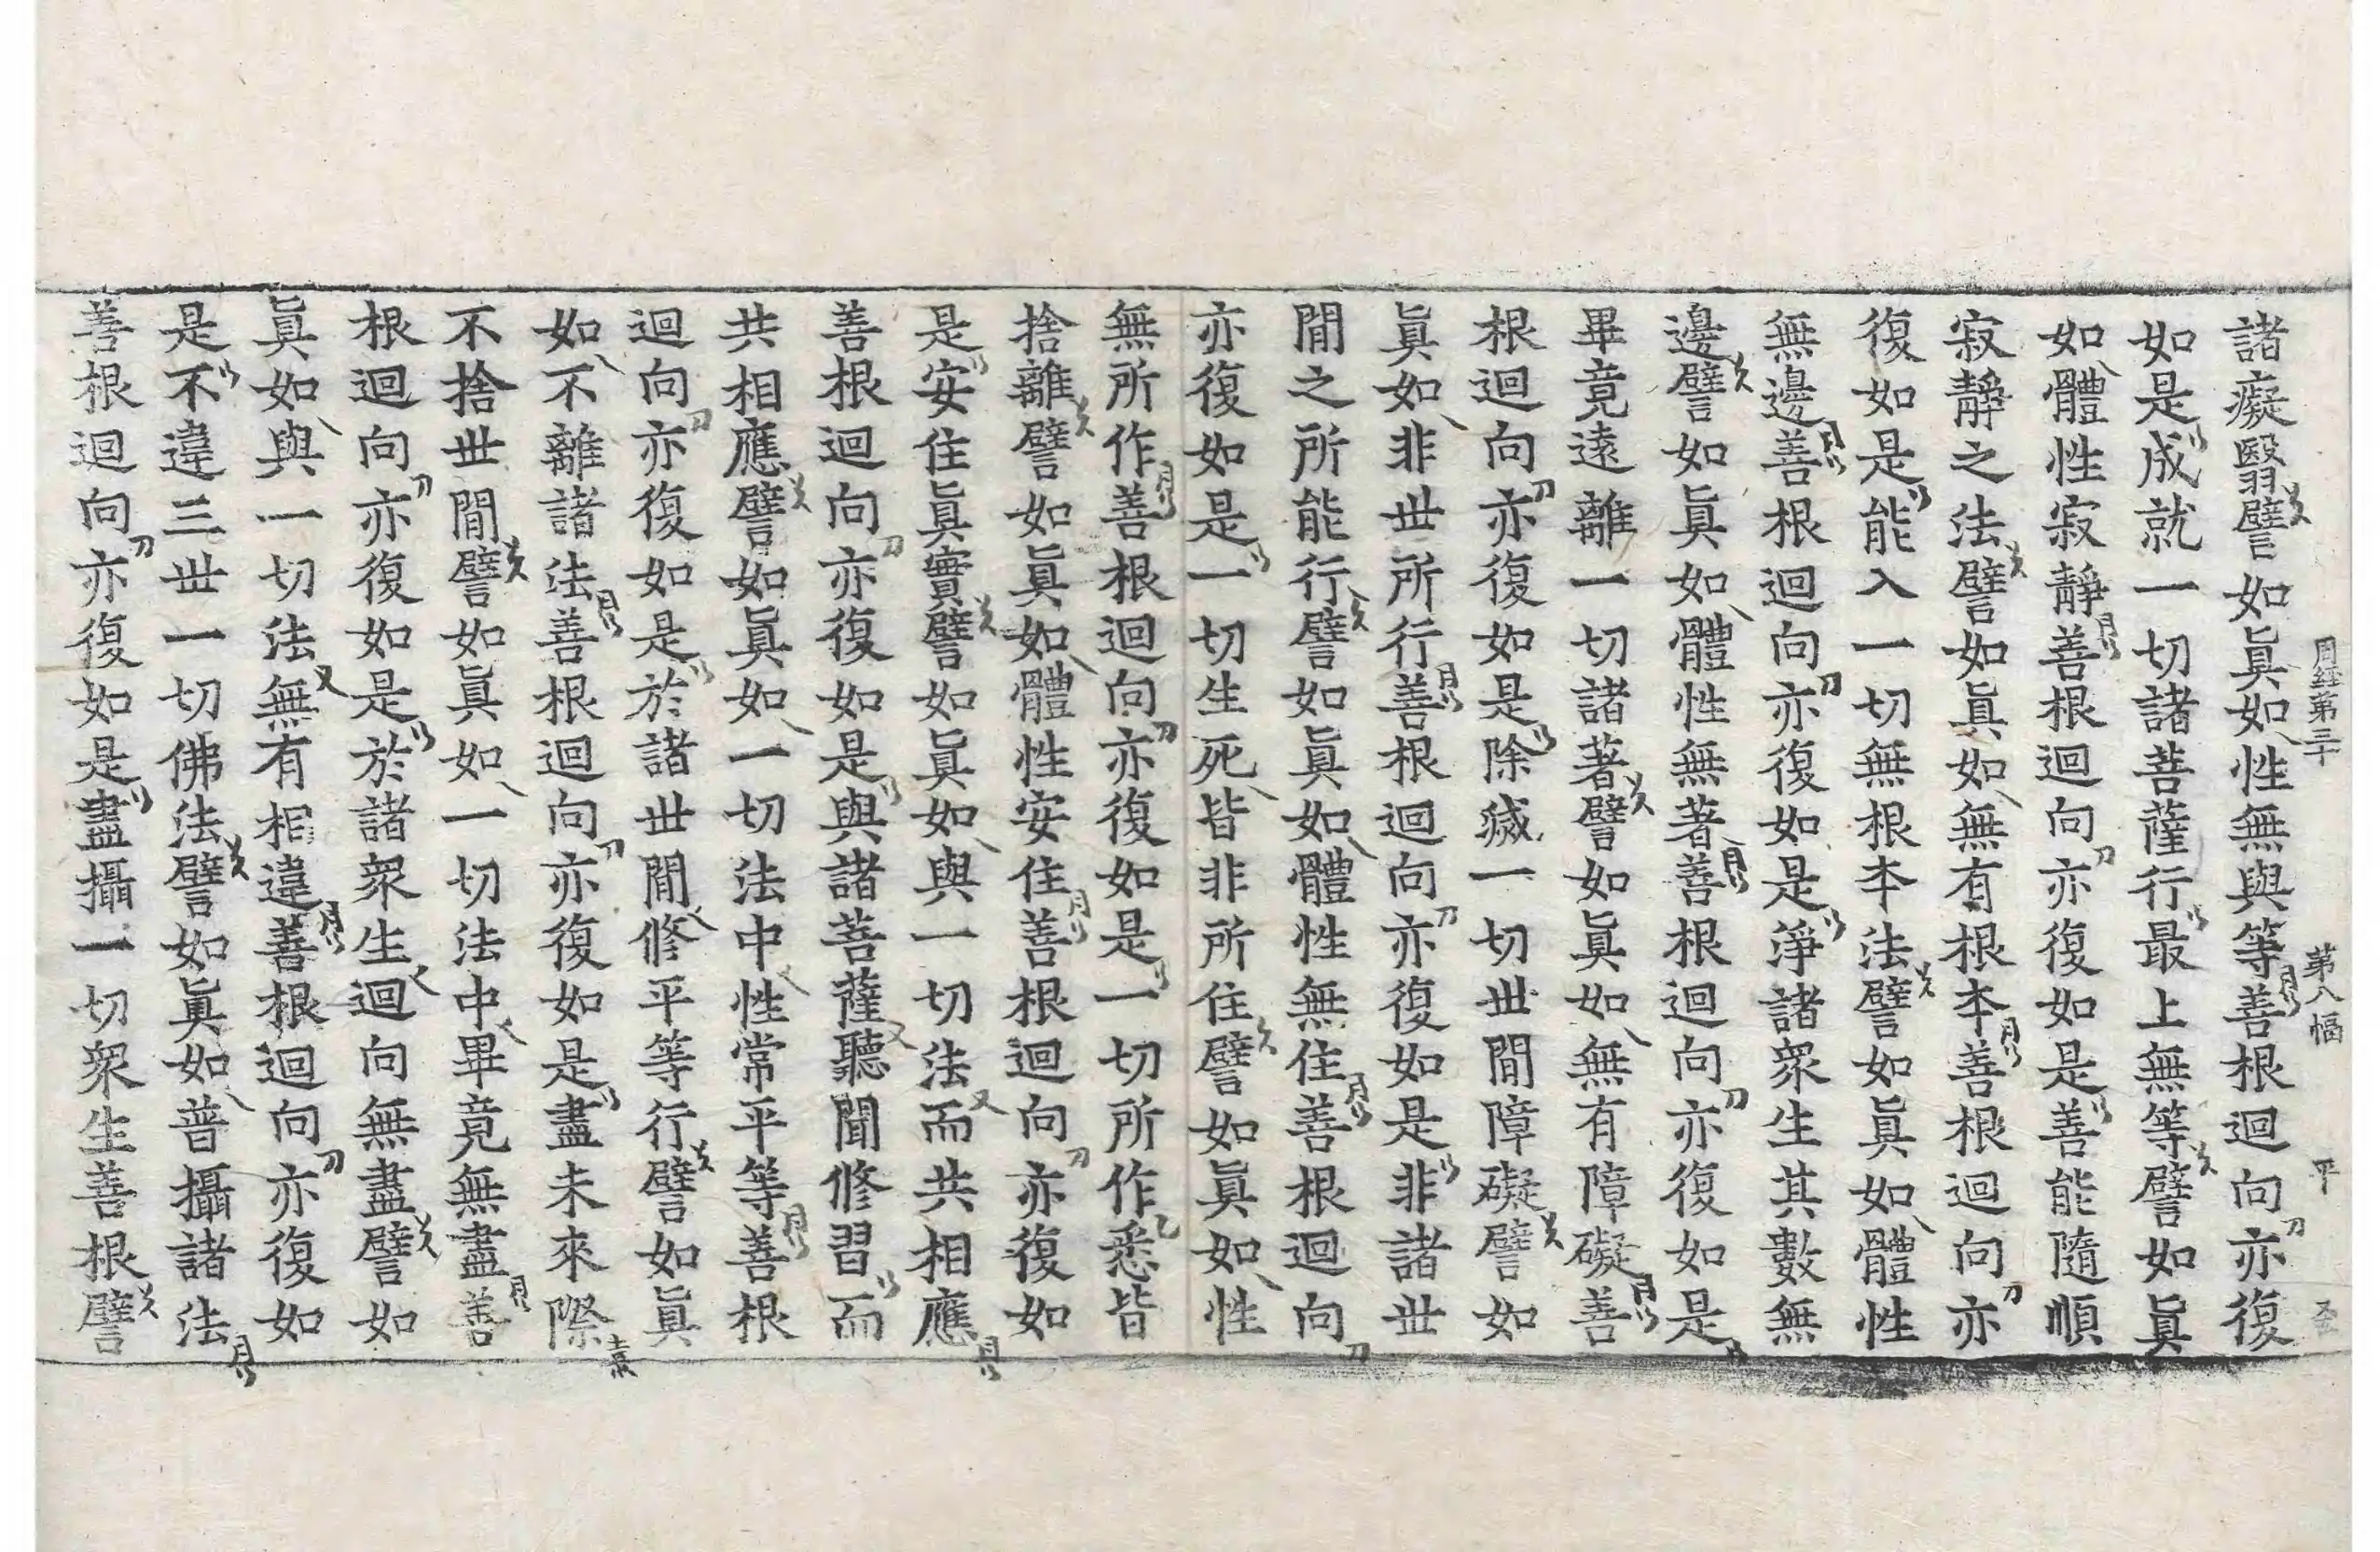 周經第三十 第八幅 平
諸癡翳譬如眞如性無與等善根迴向亦復
如是成就一切諸菩薩行最上無等譬如眞
如體性寂靜善根迴向亦復如是善能隨順
寂靜之法譬如眞如無有根本善根迴向亦
復如是能入一切無根本法譬如眞如體性
無邊善根迴向亦復如是淨諸衆生其數無
邊譬如眞如體性無著善根迴向亦復如是
畢竟遠離一切諸著譬如眞如無有障礙善
根迴向亦復如是除滅一切世間障礙譬如
眞如非世所行善根迴向亦復如是非諸世
間之所能行譬如眞如體性無住善根迴向
亦復如是一切生死皆非所住譬如眞如性
無所作善根迴向亦復如是一切所作悉皆
捨離譬如眞如體性安住善根迴向亦復如
是安住眞實譬如眞如與一切法而共相應
善根迴向亦復如是與諸菩薩聽聞修習而
共相應譬如眞如一切法中性常平等善根
迴向亦復如是於諸世間修平等行譬如眞
如不離諸法善根迴向亦復如是盡未來際
不捨世間譬如眞如一切法中畢竟無盡善
根迴向亦復如是於諸衆生迴向無盡譬如
眞如與一切法無有相違善根迴向亦復如
是不違三世一切佛法譬如眞如普攝諸法
善根迴向亦復如是盡攝一切衆生善根譬